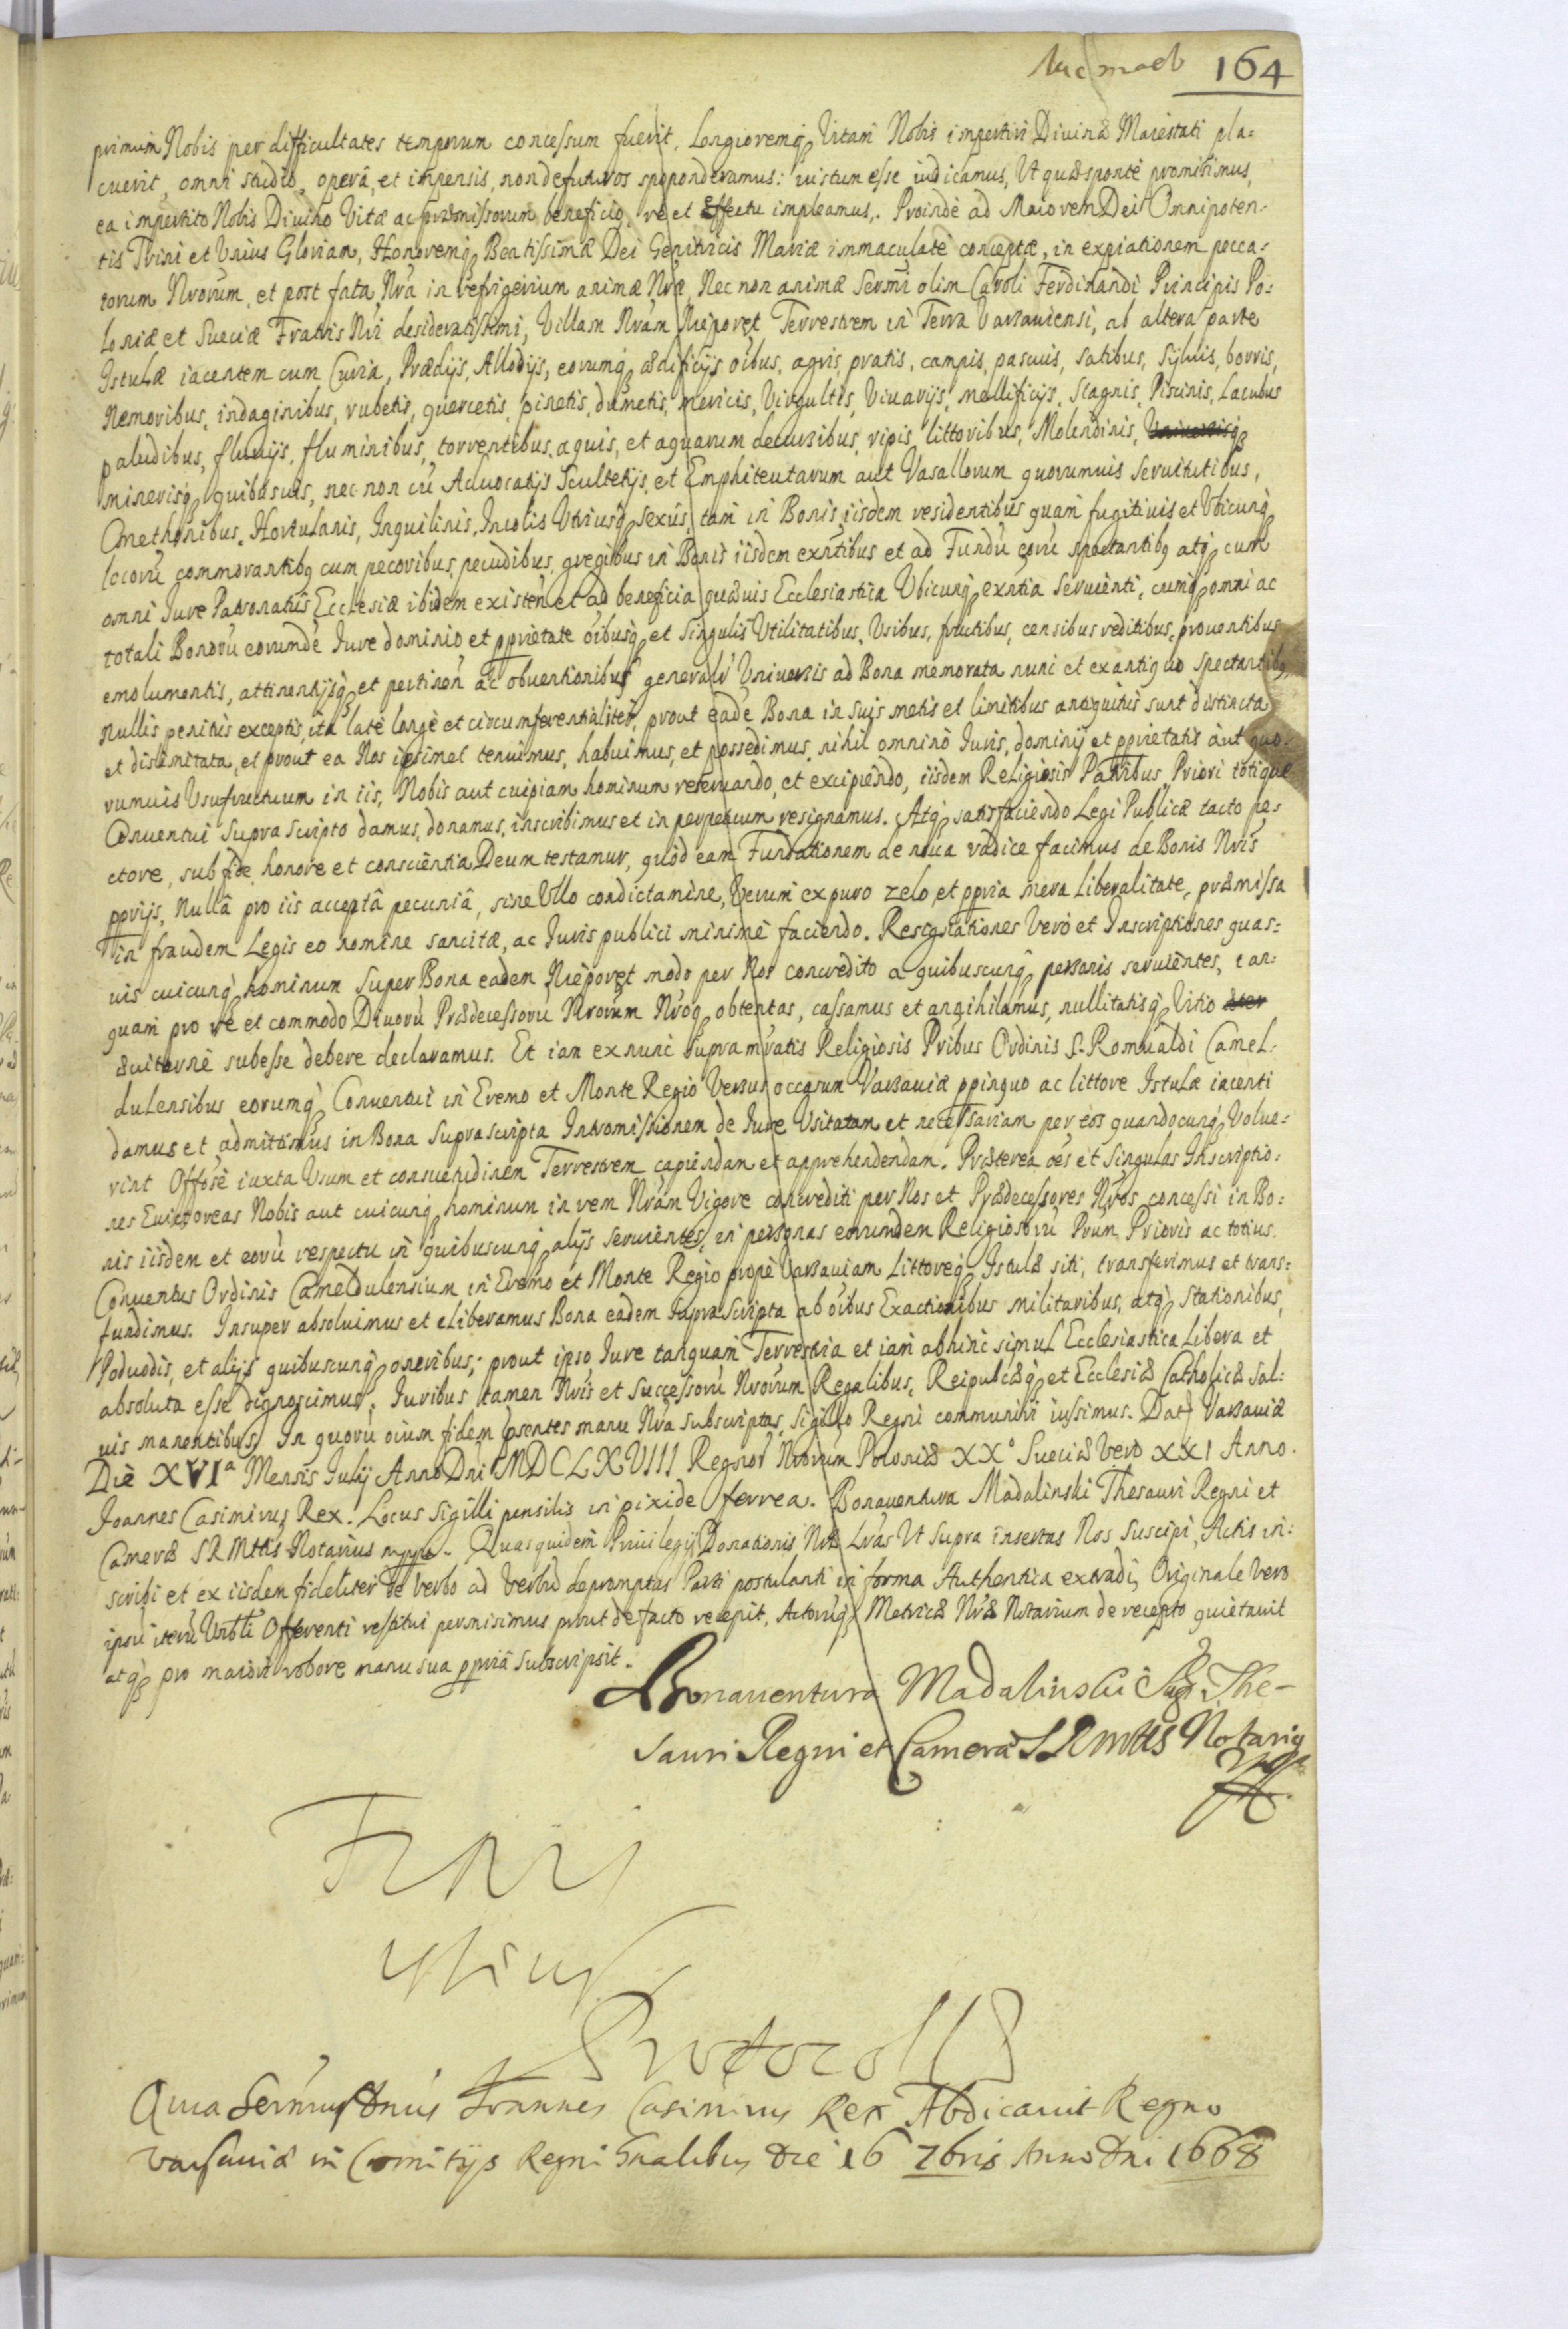 164
primum Nobis per difficultates temporum concessum fuerit, Longioremq; Vitam Nobis impertiri Divinæ Maiestati pla=
cuerit, omni studio, operâ, et impensis, non defuturos spoponderamus: iustum esse iudicamus, Ut quæ sponte promisimus,
ea impertito Nobis Divino Vitæ ac præmissorum beneficio, re et Effectu impleamus. Proindè ad Maiorem Dei Omnipoten=
tis Trini et Unius Gloriam, Honoremq; Beatissimæ Dei Genitricis Mariæ immaculatè conceptæ, in expiationem pecca=
torum Nrorum, et post fata Nra in refrigerium animæ Nræ, Nec non animæ Sermi olim Caroli Ferdinandi Principis Po=
loniæ et Sueciæ Fratris Nri desideratissimi, Villam Nram Nieporęt Terrestrem in Terra Varsauiensi, ab altera parte
Istulæ iacentem cum Curia, Prædijs, Allodijs, eorumq; ædificijs oibus, agris, pratis, campis, pascuis, satibus, Syluis, borris,
Nemoribus, indaginibus, rubetis, quercetis, pinetis, dumetis, mericis, Virgultis, Viuarijs, mellificijs, Stagnis, Piscinis, Lacubus
paludibus, fluuijs, fluminibus, torrentibus, aquis, et aquarum decursibus, ripis, littoribus, Molendinis, Universisq;
minerisq; quibusuis, nec non cu Aduocatijs Scultetijs, et Emphiteutarum aut Vasallorum quorumuis Seruitutibus,
Cmethonibus, Hortulanis, Inquilinis, Incolis Utriusq; sexus, tam in Bonis iisdem residentibus quam fugitiuis et Ubicunq;
locoru commorantibq cum pecoribus, pecudibus, gregibus in Bonis iisdem exntibus et ad Fundu eoru spectantibq atq; cum
omni Iure Patronatus Ecclesiæ ibidem existen et ad beneficia quæuis Ecclesiastica Ubicunq; exntia Seruienti, cumq; omni ac
totali Bonoru eorumde Iure dominio et pprietate oibusq; et Singulis Utilitatibus, Usibus, fructibus, censibus reditibus, prouentibus
emolumentis, attinentijsq; et pertinen ac obuentionibus generalr Uniuersis ad Bona memorata nunc et ex antiquo spectantibq,
nullis penitùs exceptis, ità latè longè et circumferentialiter, prout eade Bona in suis metis et limitibus antiquitùs sunt distincta
et dislimitata, et prout ea Nos ipsimet tenuimus, habuimus, et possedimus, nihil omninò Iuris, dominij et pprietatis aut quo=
rumuis Usufructuum in iis, Nobis aut cuipiam hominum reseruando, et excipiendo, iisdem Religiosis Patribus, Priori totique
Conuentui Supra scripto damus, donamus, inscribimus et in perpetuum resignamus. Atq; satisfaciendo Legi Publicæ tacto pe=
ctore, sub fide, honore et conscientia Deum testamur, quòd eam Fundationem de noua radice facimus de Bonis Nris
pprijs, Nullâ pro iis acceptâ pecuniâ, sine Ullo condictamine, Verum ex puro zelo, et ppria mera liberalitate, præmissa
in fraudem Legis eo nomine sancitæ, ac Iuris publici minimè faciendo. Resignationes Verò et Inscriptiones quas=
uis cuicunq; hominum Super Bona eadem Nieporęt modo per Nos concredito a quibuscunq; personis seruientes, tan=
quam pro re et commodo Diuoru Prædecessoru Nrorum Nroq; obtentas, cassamus et annihilamus, nullitatisq; Vitio æter
æuiternè subesse debere declaramus. Et iam ex nunc Supramratis Religiosis Pribus Ordinis S. Romualdi Camel=
dulensibus eorumq; Conuentui in Eremo et Monte Regio Versus occasum Varsauiæ ppinquo ac littore Istulæ iacenti
damus et admittimus in Bona Suprascripta Intromissionem de Iure Usitatam et necessariam per eos quandocunq; Volue=
rint Offose iuxta Usum et consuetudinem Terrestrem capiendam et apprehendendam. Præterea oes et Singulas Inscriptio=
nes Euictoreas Nobis aut cuicunq; hominum in rem Nram Vigore concrediti per Nos et Prædecessores Nros concessi in Bo=
nis iisdem et eoru respectu in quibuscunq; alijs seruientes, in personas eorundem Religiosoru Prum, Prioris ac totius
Conuentus Ordinis Cameldulensium in Eremo et Monte Regio propè Varsauiam Littoreq; Istulæ siti, transferimus et trans=
fundimus. Insuper absoluimus et eliberamus Bona eadem Suprascripta ab oibus Exactionibus militaribus, atq; Stationibus,
Poduodis, et alijs quibuscunq; oneribus; prout ipso Iure tanquam Terrestria et iam abhinc simul Ecclesiastica Libera et
absoluta esse dignoscimus, Iuribus tamen Nris et Successoru Nrorum Regalibus, Reipubcæq; et Ecclesiæ Catholicæ Sal=
uis manentibus. In quoru oium fidem psentes manu Nra subscriptas, Sigillo Regni communiri iussimus. Dat Varsauiæ
Die XVIa Mensis Iulij Anno Dni MDCLXVIII Regnor Nrorum Poloniæ XX° Sueciæ Vero XXI Anno.
Joannes Casimirus Rex. Locus Sigilli pensilis in pixide ferrea. Bonauentura Madalinski Thesauri Regni et
Cameræ SRMttis Notarius mppa. Quas quidem Priuilegij Donationis Nræ Lras Ut Supra insertas Nos Suscipi, Actis in=
scribi et ex iisdem fideliter de verbo ad verbu depromptas Parti postulanti in forma Authentica extradi, Originale Vero
ipsu iteru Offerenti restitui permisimus prout de facto recepit, Actoruq; Metricæ Nræ Notarium de recepto quietauit
atq; pro maiori robore manu sua ppria Subscripsit.
Bonauentura Madalinski The-
sauri Regni et Camera SRMttis Notariq
mp
Finis
istius
Protocolli
Qua Sermus Dnus Joannes Casimirus Rex Abdicauit Regno
Varsauiæ in Comitijs Regni Gnalibus die 16 7bris Anno Dni 1668